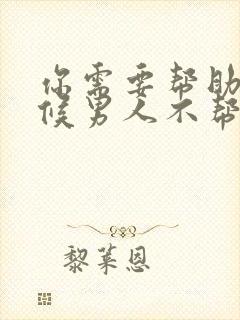 你需要帮助
候男人不帮
黎莱恩